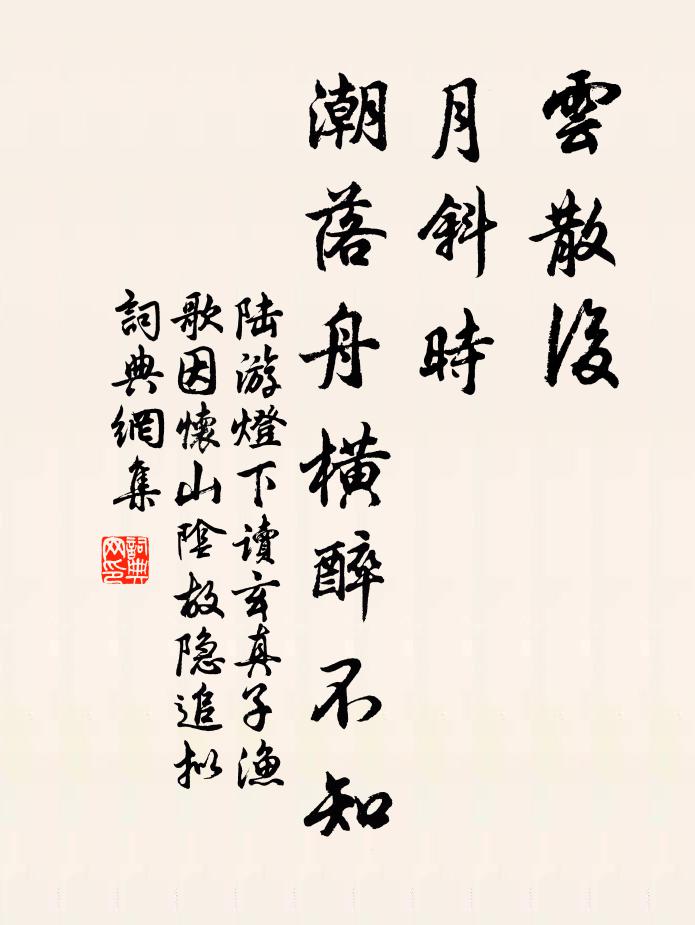 雲散後
月斜時
潮落舟橫醉不知
陆游燈下讀玄真子漁
歌因懷山陰故隐追拟
詞典網集
詞典
网印